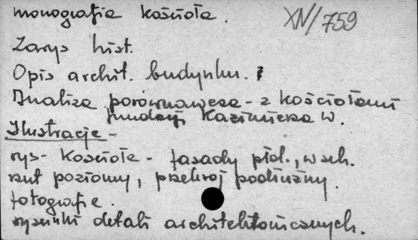 monografia kościoła. XV/759
Zarys hist.
Opis archit. budynku.
Analiza porównawcza - z kościołami
fundacji Kazimierza W.
Ilustracje -
rys - kościoła - fasady płd., wsch.
rzut poziomy, przekrój podłużny.
fotografie.
rysunki detali architektonicznych.